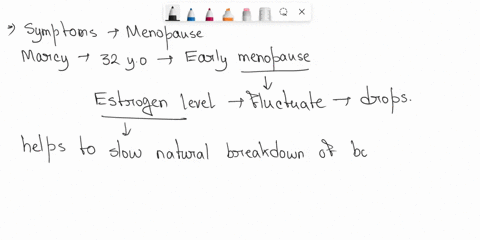 ⇒) Symptoms → Menopause
Marcy → 32 y.o → Early menopause
↓
Estrogen level → Fluctuate → drops.
↓
helps to slow natural breakdown of bo